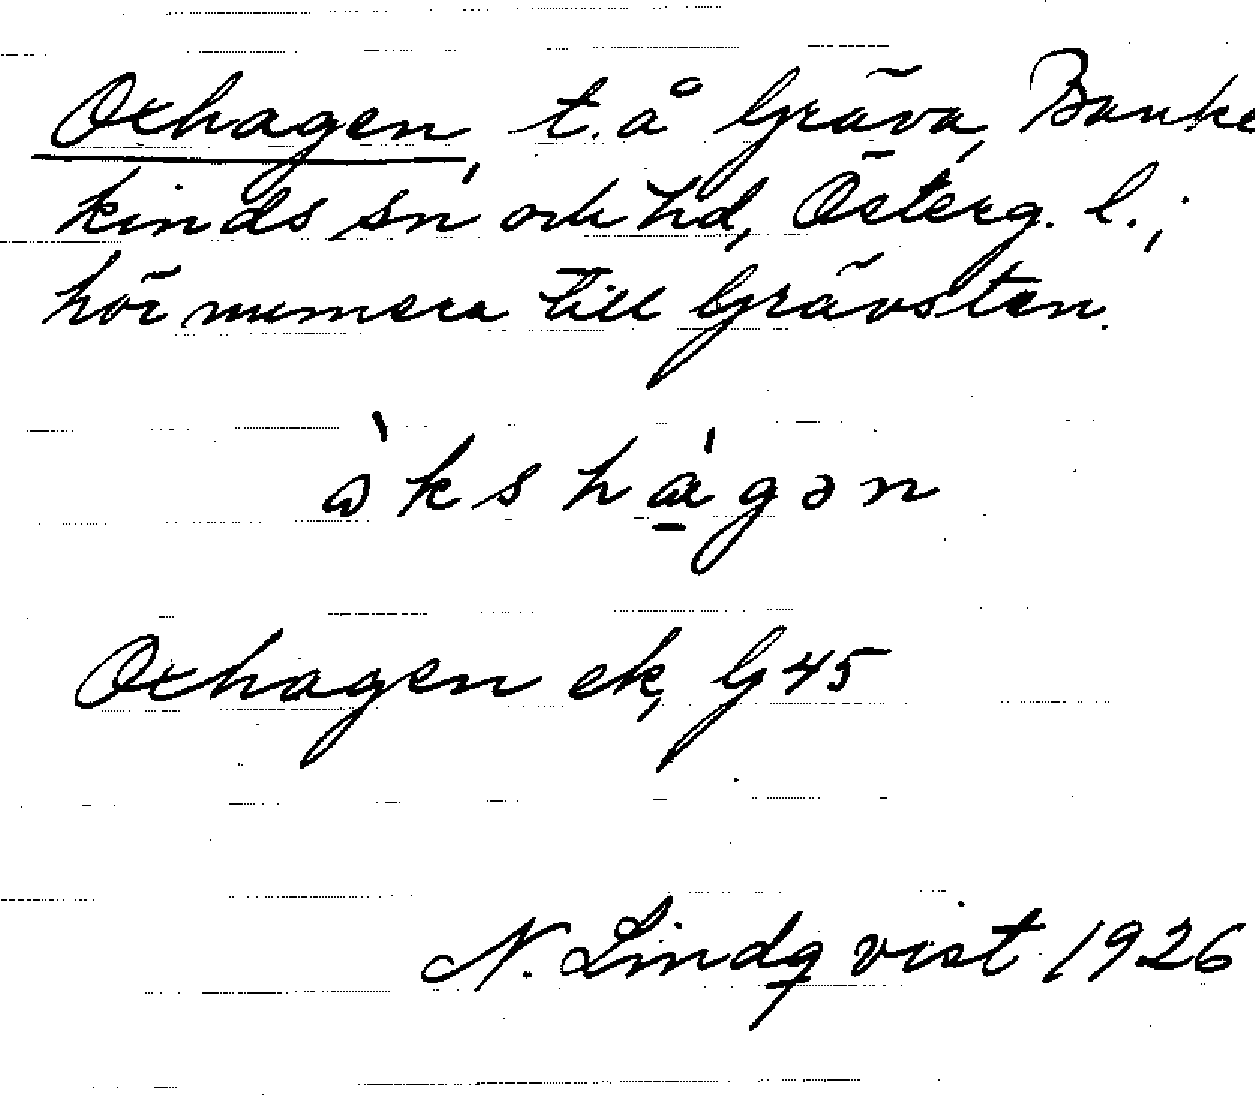 Oxhagen, t. å Gräva, Banke
kinds sn och hd, Österg. l.;
hör numera till Grävsten.
ὼkshá̱gən
Oxhagen ek, G 45
N. Lindqvist 1926